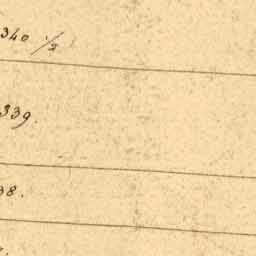 340 1/2
339.
38.